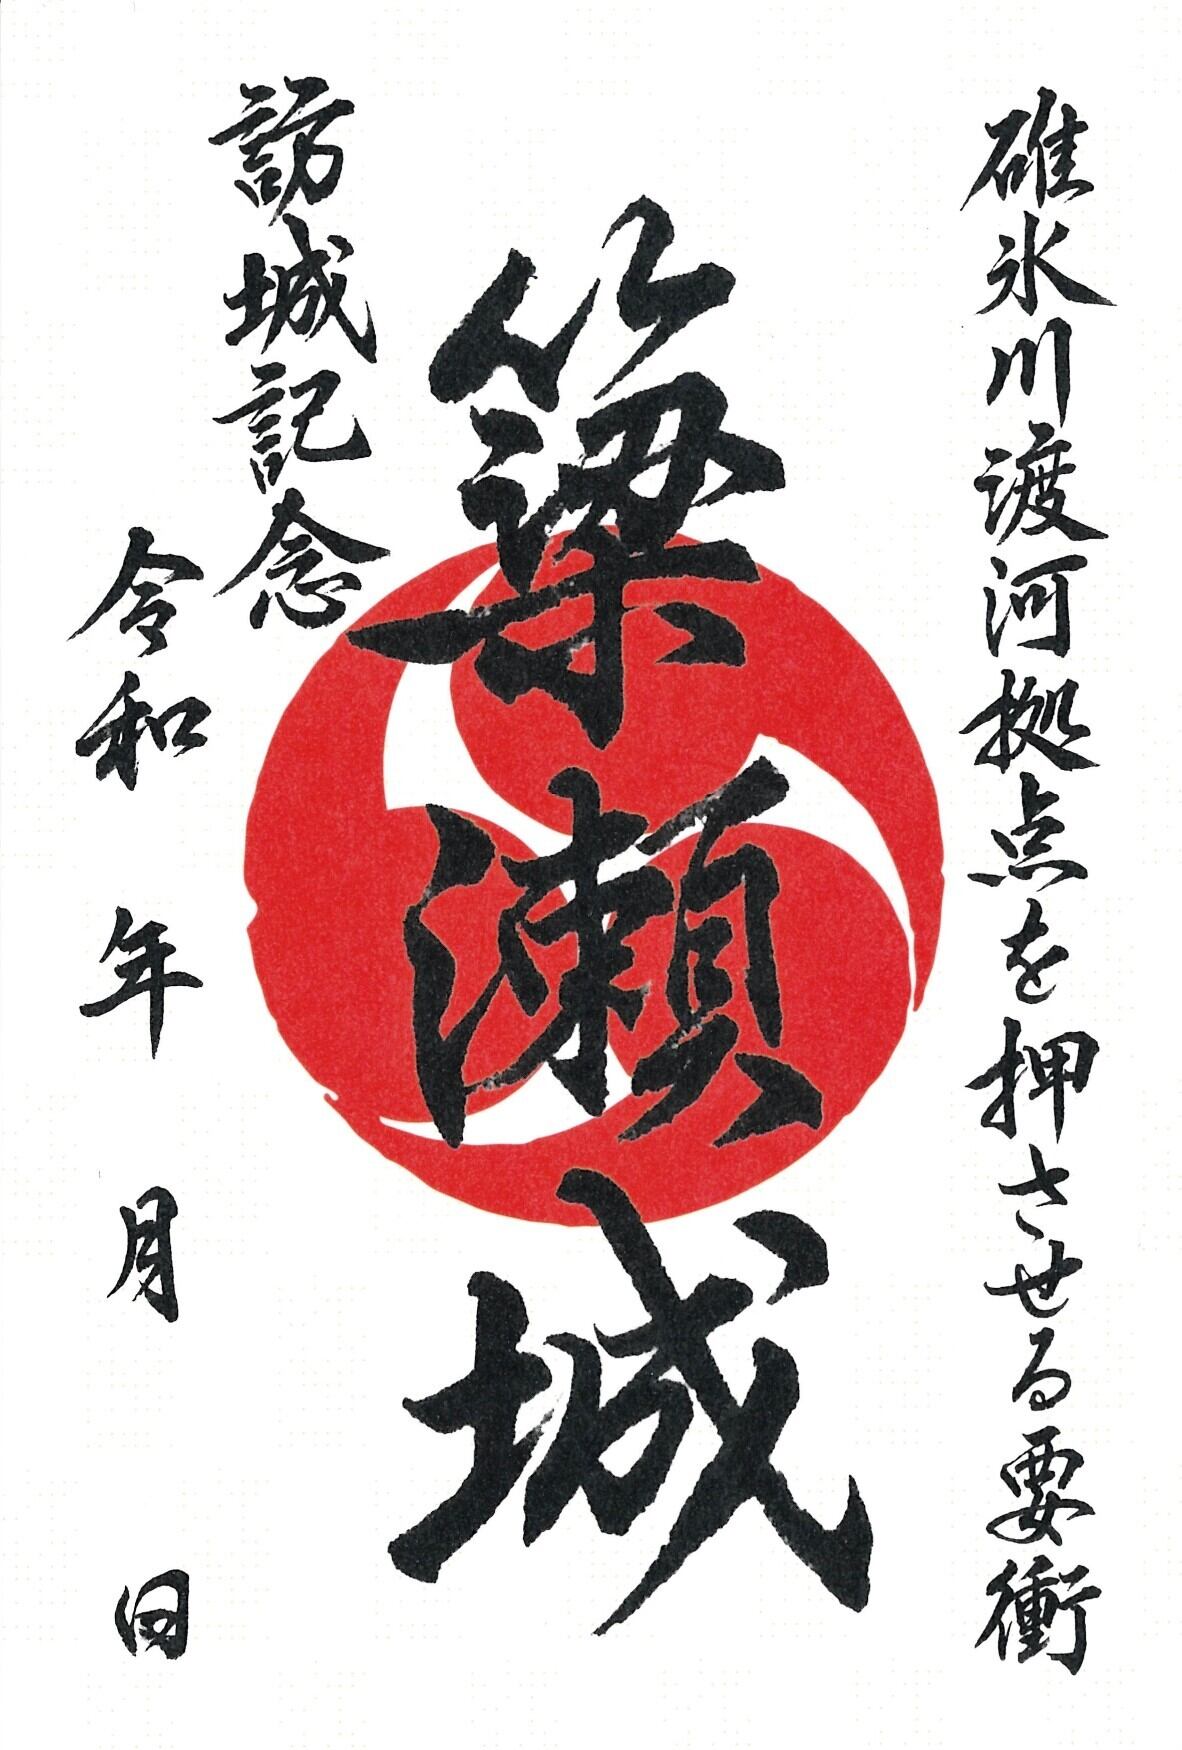 碓氷川渡河拠点を押させる要衝
簗瀬城
訪城記念
令和 年 月 日